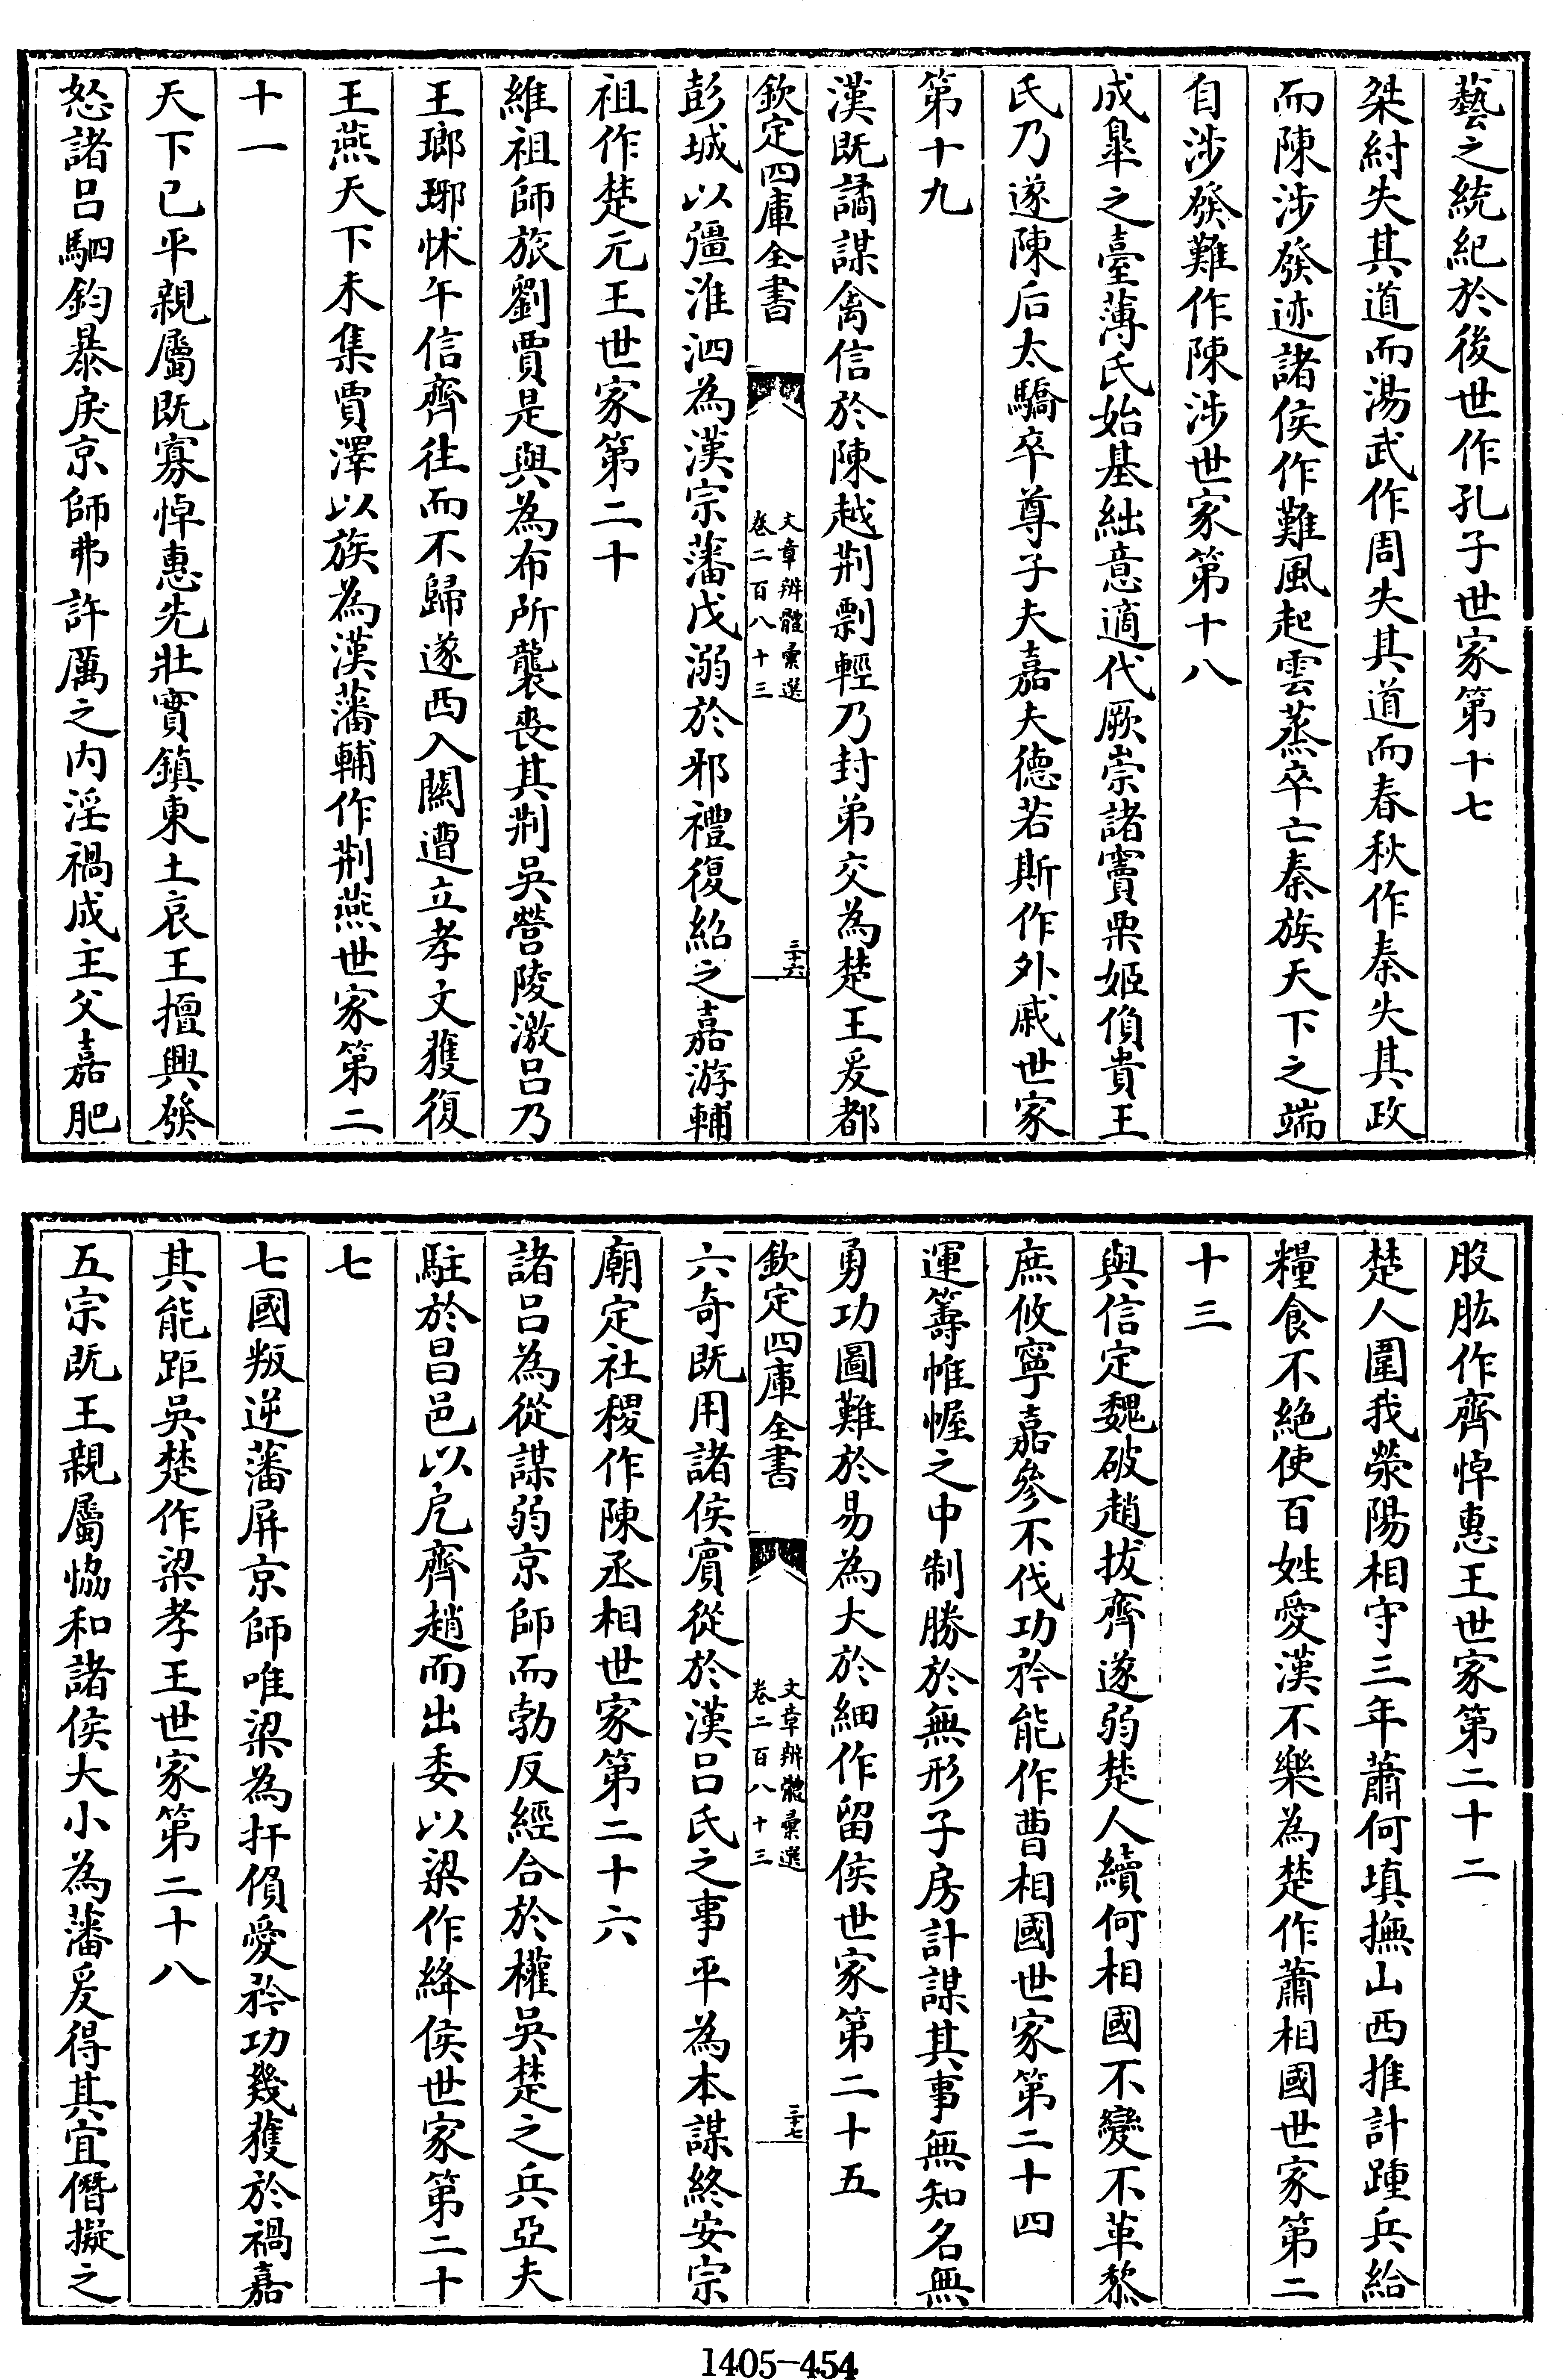 藝之統紀於後世作孔子世家第十七
桀紂失其道而湯武作周失其道而春秋作秦失其政
而陳涉發迹諸侯作難風起雲蒸卒亡秦族天下之端
自涉發難作陳涉世家第十八
成臯之臺薄氏始基絀意適代厥崇諸竇栗姬偩貴王
氏乃遂陳后太驕卒尊子夫嘉夫德若斯作外戚世家
第十九
漢既譎謀禽信於陳越荆剽輕乃封弟交為楚王爰都
欽定四庫全書
文章辨體彚選
卷二百八十三
三十六
彭城以彊淮泗為漢宗藩戊溺於邪禮復紹之嘉游輔
祖作楚元王世家第二十
維祖師旅劉賈是與為布所襲喪其荆吳營陵激吕乃
王瑯琊怵午信齊往而不歸遂西入關遭立孝文獲復
王燕天下未集賈澤以族為漢藩輔作荆燕世家第二
十一
天下已平親屬既寡悼惠先壯實鎮東土哀王擅興發
怒諸吕駟鈞暴戾京師弗許厲之内淫禍成主父嘉肥
股肱作齊悼惠王世家第二十二
楚人圍我滎陽相守三年蕭何填撫山西推計踵兵給
糧食不絶使百姓愛漢不樂為楚作蕭相國世家第二
十三
與信定魏破趙拔齊遂弱楚人續何相國不變不革黎
庶攸寧嘉參不伐功矜能作曹相國世家第二十四
運籌帷幄之中制勝於無形子房計謀其事無知名無
勇功圖難於易為大於細作留侯世家第二十五
欽定四庫全書
文章辨體彚選
卷二百八十三
三十七
六奇既用諸侯賓從於漢吕氏之事平為本謀終安宗
廟定社稷作陳丞相世家第二十六
諸吕為從謀弱京師而勃反經合於權吳楚之兵亞夫
駐於昌邑以戹齊趙而出委以梁作絳侯世家第二十
七
七國叛逆藩屏京師唯梁為扞偩愛矜功幾獲於禍嘉
其能距吳楚作梁孝王世家第二十八
五宗既王親屬恊和諸侯大小為藩爰得其宜僭擬之
1405-454